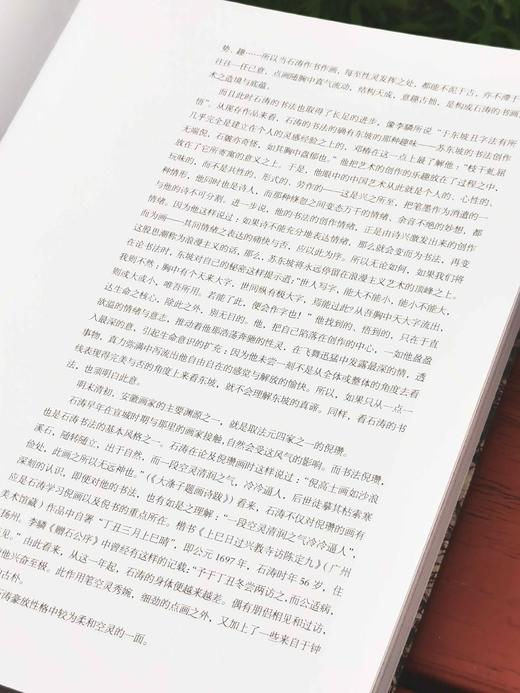 势、趣……所以当石涛作书作画，每至性灵发挥之处，都能不泥于古，亦不滞于
往往一任己意，点画随胸中真气流动，结构天成，意趣古拙，是构成石涛的书画
术之造境与底蕴。
而且此时石涛的书法也取得了长足的进步，像李驎所说“于东坡丑字法有所
悟”。从现存作品来看，石涛的书法的确有东坡的那种趣味——苏东坡的书法创作
几乎完全是建立在个人的灵感经验之上的，邓椿在这一点上最了解他：“枝干虬屈
无端倪，石皴亦奇怪，如其胸中盘郁也。”他把艺术的创作的乐趣放在了过程之中，
放在了它所寄寓的意义之上。于是，他眼中的中国艺术从此就是个人的、心性的、
玩味的，而不是共性的、形式的、劳作的——这是兴之所至，把笔墨作为消遣的一
种情形，他同时也是诗人，而那种倏忽之间变态万千的情绪、余音不绝的妙想，都
与他的诗不可分割。进一步说，他的书法的创作情绪，正是由诗兴激发出来的创作
情绪。因为他这样说过：如果诗不能充分地表达情绪，那么就会变而为书法，再变
而为画——其间情绪之表达的痛快与否，应以此为序。所以无论如何，如果我们将
这股思潮称为浪漫主义的话，那么，苏东坡将永远停留在浪漫主义艺术的顶峰之上。
在论书法时，东坡对自己的秘密这样提示道：“世人写字，能大不能小，能小不能大，
我则不然；胸中有个天来大字，世间纵有极大字，焉能过此?从吾胸中天大字流出，
则或大或小，唯吾所用。若能了此，便会作字也！”他找到的、悟到的，只在于直
达生命之核心，除此之外，别无目的。他，把自己陷落在创作的中心，一如他盈盈
欲溢的情绪与意志，推动着他那浩荡奔驰的性灵，在飞舞迅猛中发露最深的情，透
入最深的意，引起生命意识的扩充；因为他未尝一刻不是从全体或整体的角度去看
事物，真力弥满中再流出他自由自在的感觉与解放的愉快。所以，如果只从一点一
线表现得完美与否的角度上来看东坡，就不会理解东坡的真谛。同样，看石涛的书
法，也须明白此意。
明末清初，安徽画家的主要渊源之一，就是取法元四家之一的倪瓒。
石涛早年在宣城时期与那里的画家接触，自然会受这风气的影响。而书法倪瓒，
也是石涛书法的基本风格之一。石涛在论及倪瓒画时这样说过：“倪高士画如沙浪
溪石，随转随立，出于自然，而一段空灵清润之气，冷冷逼人，后世徒摹其枯索寒
俭处，此画之所以无远神也。”（《大涤子题画诗跋》）看来，石涛不仅对倪瓒的画有
深刻的认识，即便对他的书法，也有如是之理解：“一段空灵清润之气冷冷逼人”，
应是石涛学习倪画以及倪书的重点所在。楷书《上巳日过兴教寺访陈定九》（广州
美术馆藏）作品中自署“丁丑三月上巳晴”，即公元1697年，石涛时年56岁，住
扬州。李驎《赠石公序》中曾经有这样的记载：“予于丁丑冬尝两访之，而公适病，
见。”由此看来，从这一年起，石涛的身体便越来越差。偶有朋侣相见和过访，
他兴奋至极。此作用笔空灵秀婉，细劲的点画之外，又加上了一些来自于钟
古朴。
涛豪放性格中较为柔和空灵的一面。